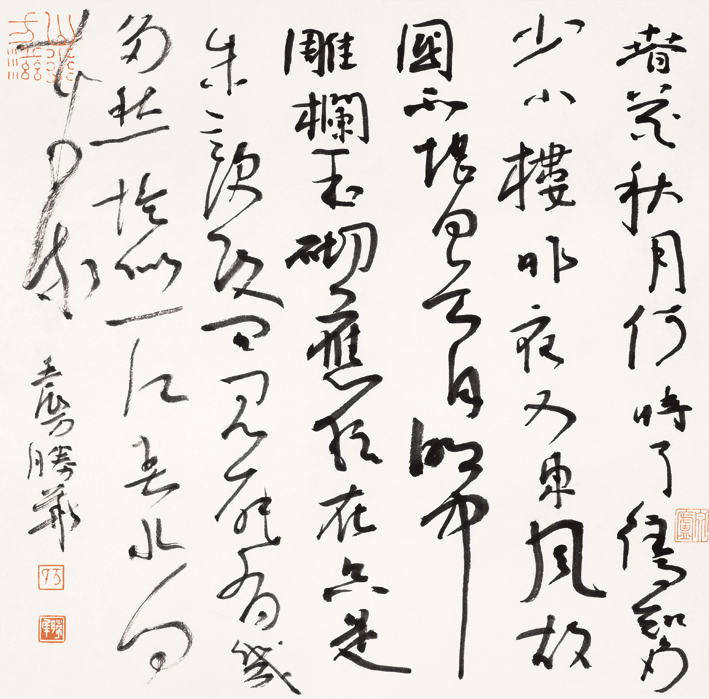 春花秋月何時了往事知多
少小樓昨夜又東風故
國不堪回首月明中
雕欄玉砌應猶在只是
朱顏改問君能有幾
多愁恰似一江春水向
東流
勝華